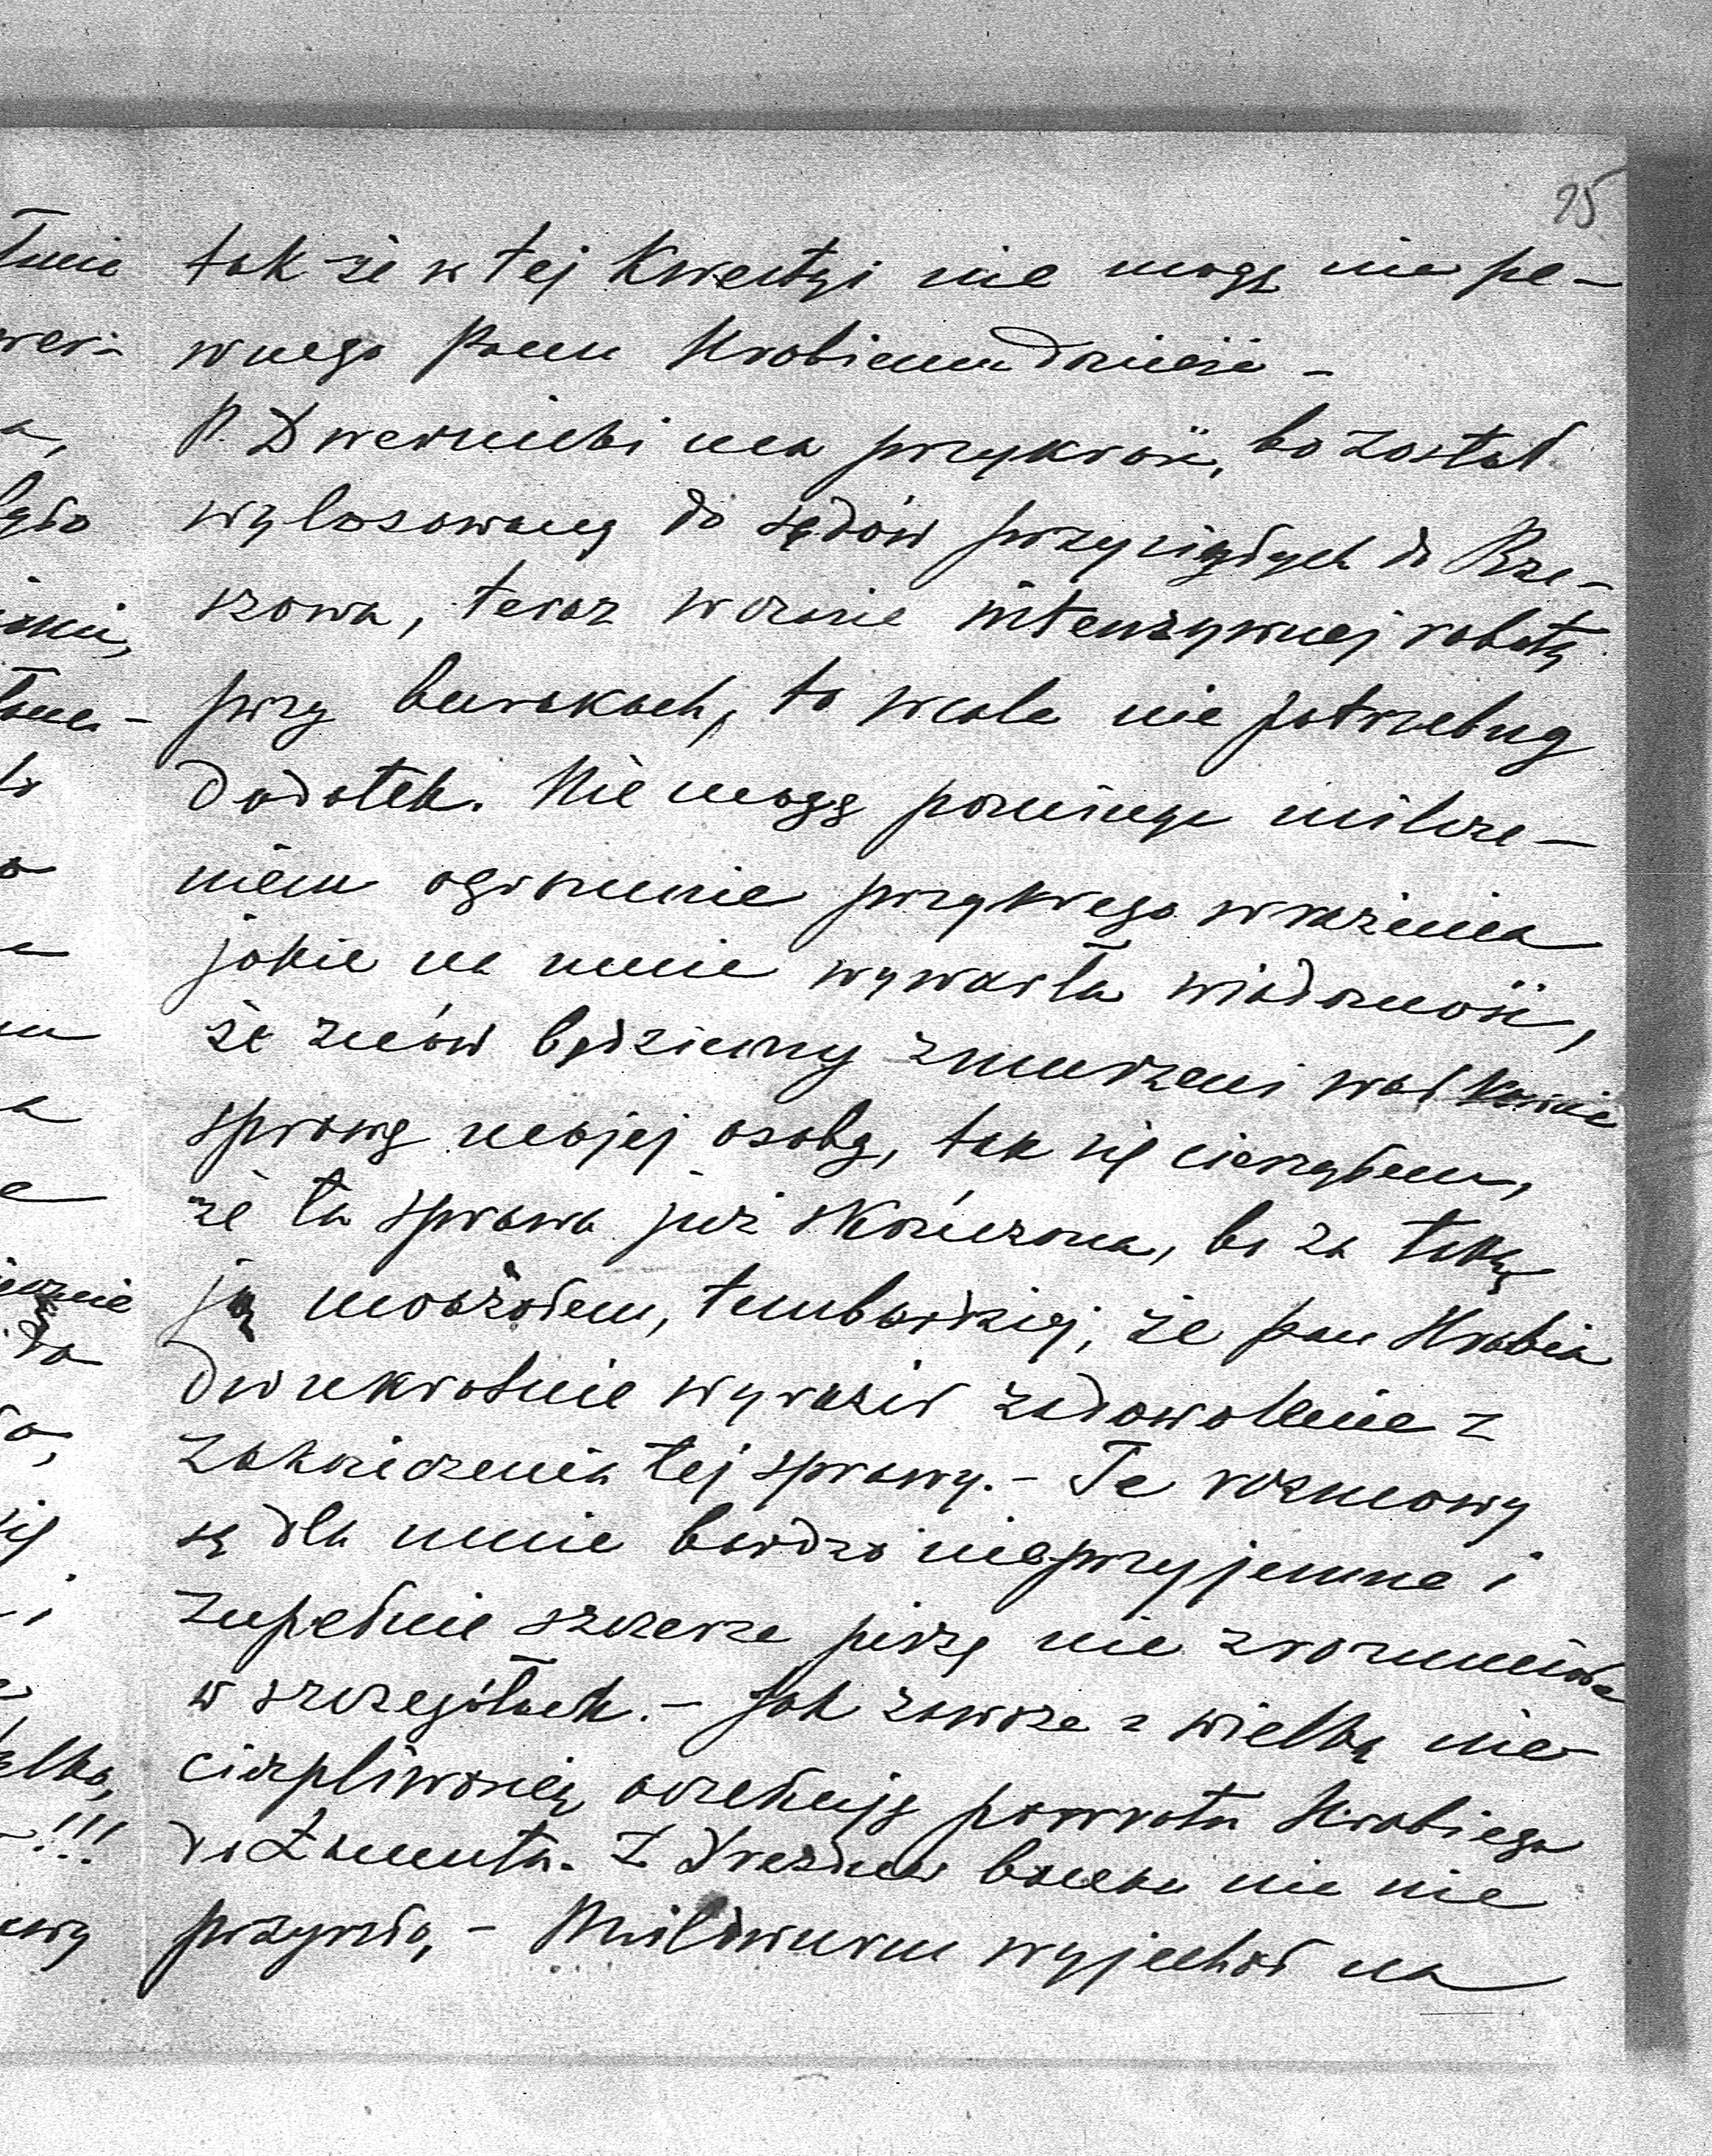 95
tak że w tej kwestyi nie mogę nic pe-
wnego Panu Hrabiemu donieść -
P. Dwernicki ma przykrość, bo został
wylosowany do sędów przysięgłych do Rze-
szowa, teraz w czasie intenzywnej roboty
przy burakach, to wcale nie potrzebny
dodatek. Nie mogę pominąć milcze-
niem ogromnie przykrego wrażenia
jakie na mnie wywarła wiadomość,
że znów będziemy zmuszeni wałkować
sprawę mojej osoby, tak się cieszyłem,
że ta sprawa już skończona, bo za taką
ją uważałem, tembardziej, że pan Hrabia
dwukrotnie wyraził zadowolenie z
zakończenia tej sprawy. - Te rozmowy
są dla mnie bardzo nieprzyjemne i
zupełnie szczerze piszę nie zrozumiałe
w szczegółach. - Jak zawsze z wielką nie-
cierpliwością oczekuję powrotu Hrabiego
do Łańcuta. Z Drezdna nic nie
przyszło, - Mildwurm wyjechał na